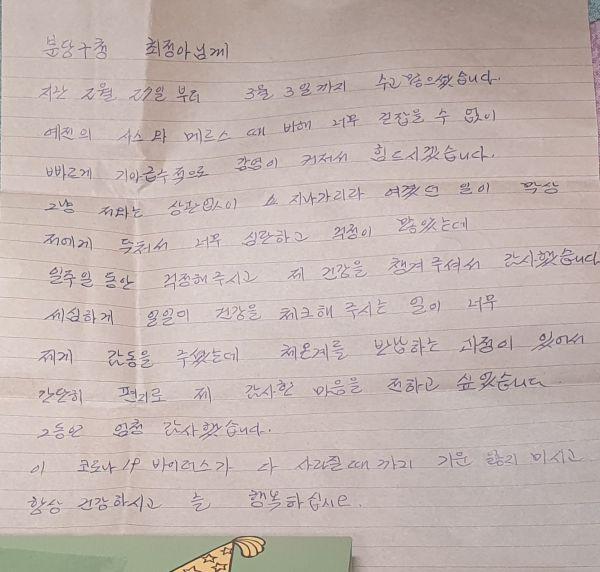 분당구청 최정아님께
지난 2월 27일 부터 3월 3일까지 수고많으셨습니다.
예전의 사스와 메르스 때 비해 너무 걷잡을 수 없이
빠르게 기아급수적으로 감염이 커져서 힘드시겠습니다.
그냥 저와는 상관없이 쇼 지나가리라 여겼던 일이 막상
저에게 닥쳐서 너무 심란하고 걱정이 많았는데
일주일 동안 걱정해주시고 제 건강을 챙겨주셔서 감사했습니다
세심하게 일일이 건강을 체크해 주시는 일이 너무
제게 감동을 주셨는데 체온계를 반납하는 과정이 있어서
간단히 편지로 제 감사한 마음을 전하고 싶었습니다.
그동안 엄청 감사했습니다.
이 코로나19 바이러스가 다 사라질때 까지 기운 잃지 마시고
항상 건강하시고 늘 행복하십시요.